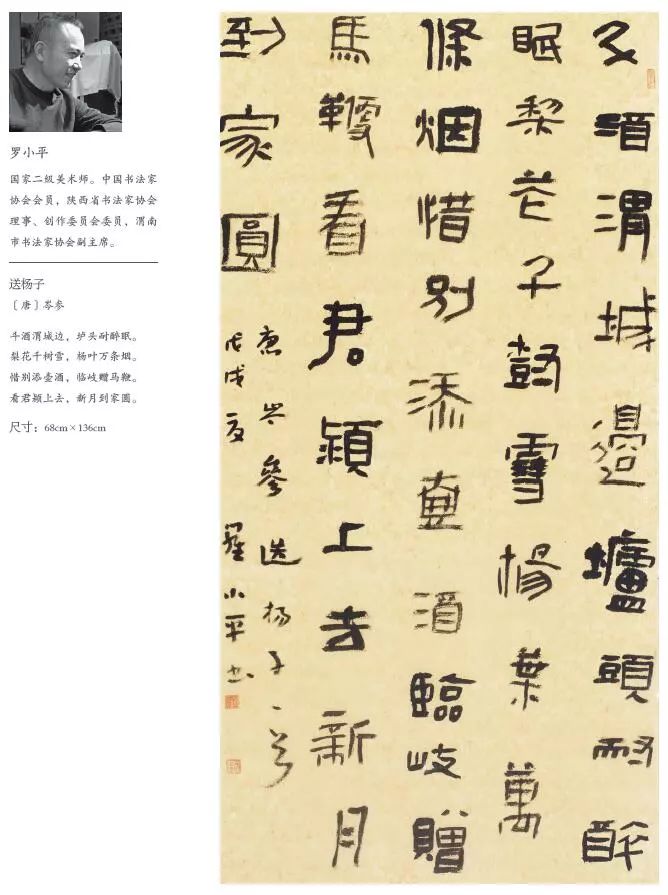 罗小平
国家二级美术师。中国书法家
协会会员，陕西省书法家协会
理事、创作委员会委员，渭南
市书法家协会副主席。
送杨子
〔唐〕岑参
斗酒渭城边，垆头耐醉眠。
梨花千树雪，杨叶万条烟。
惜别添壶酒，临岐赠马鞭。
看君颖上去，新月到家圆。
尺寸：68cm×136cm
斗酒渭城邊壚頭耐醉
眠梨花千樹雪楊葉萬
條烟惜别添壺酒臨岐贈
馬鞭看君穎上去新月
到家圓
唐岑參送杨子一首
戊戌夏羅小平书